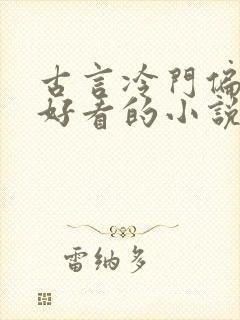 古言冷門偏
好看的小説
雷纳多